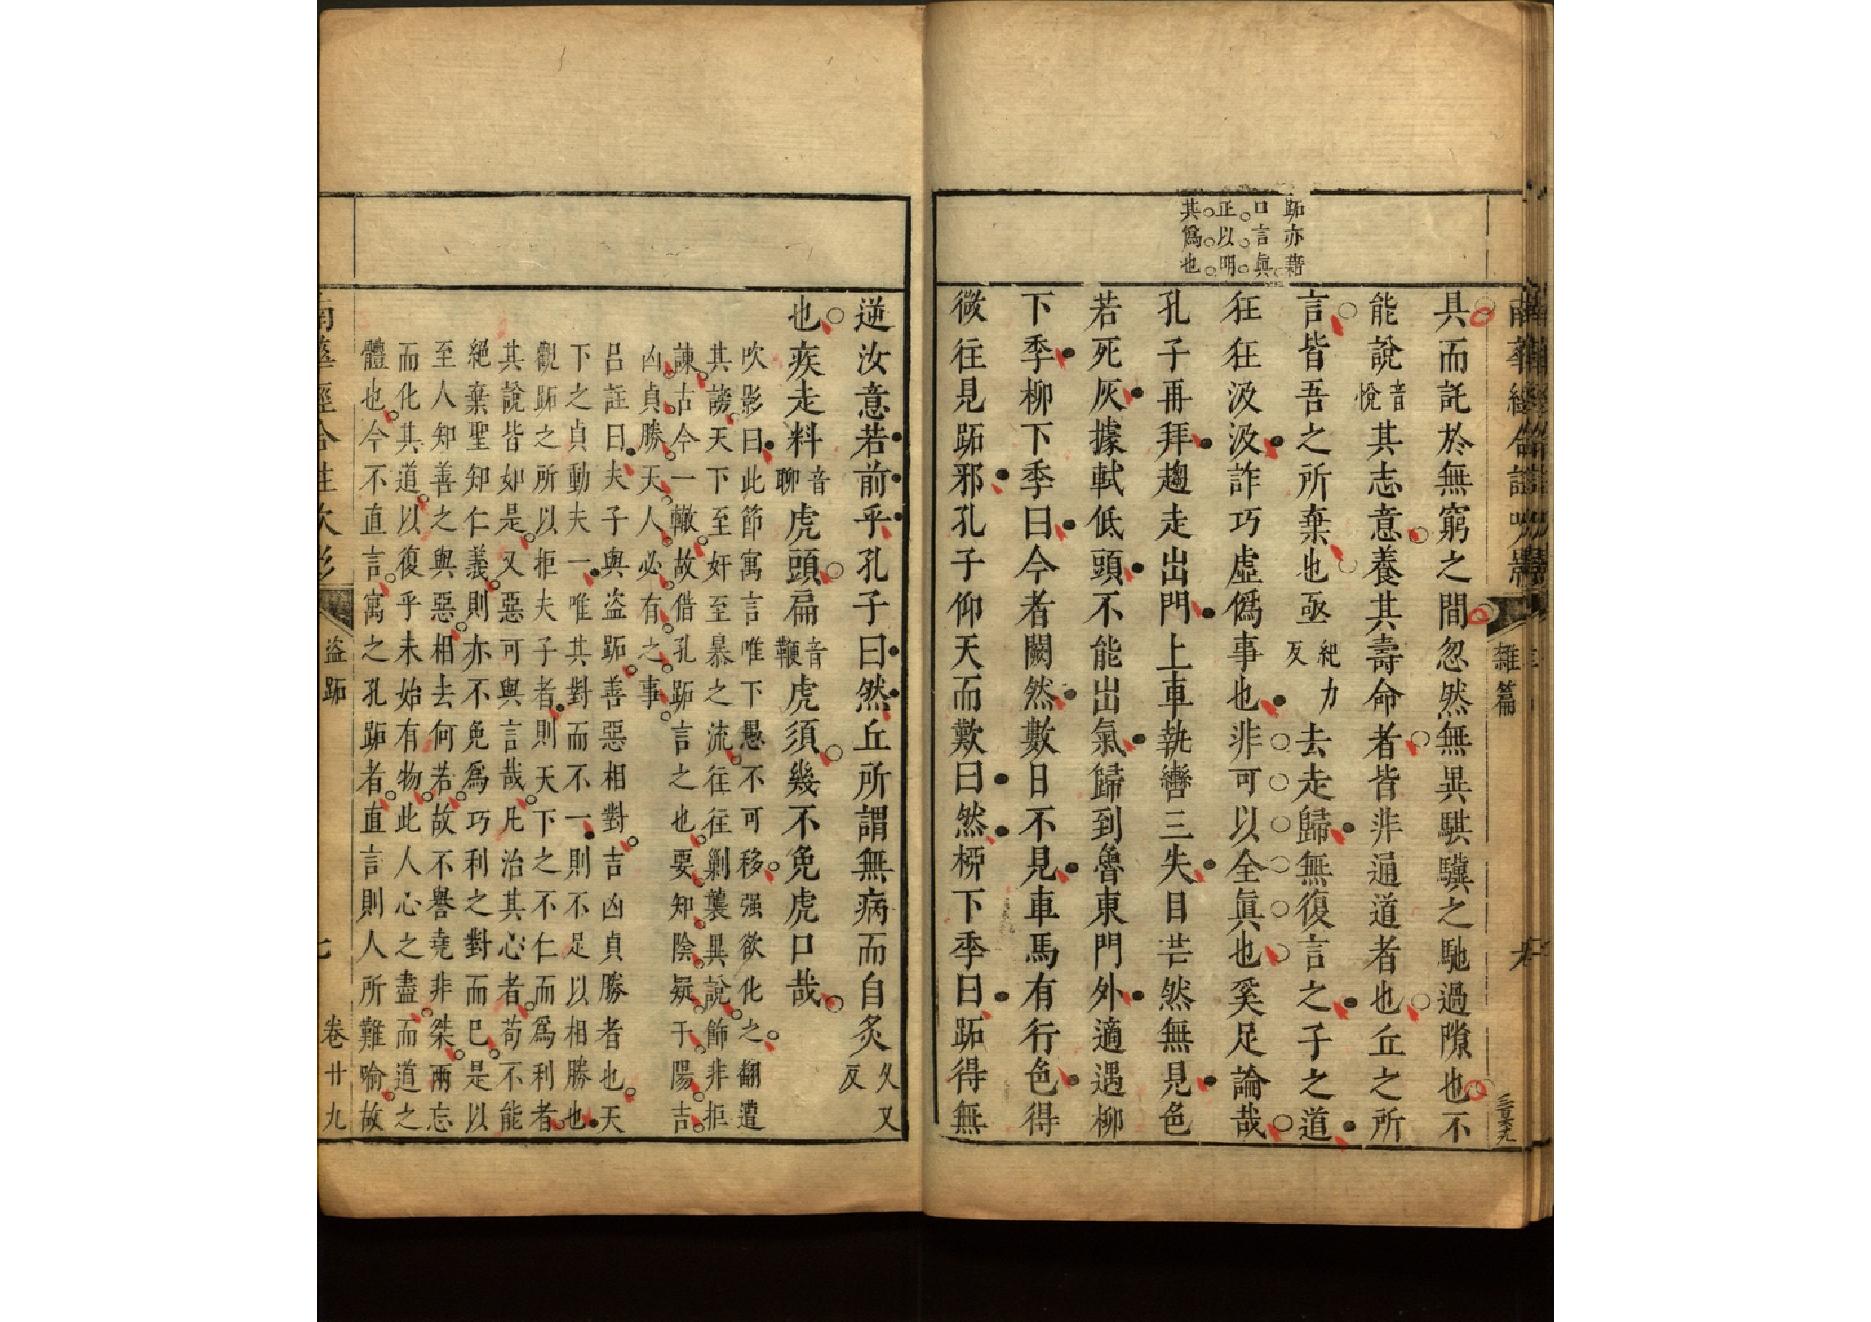 跖亦藉
口言眞
正以明
其爲也
雜篇
具而託於無窮之間忽然無異騏驥之馳過隙也不
能說音悅其志意養其壽命者皆非通道者也丘之所
言皆吾之所棄也亟紀力反去走歸無復言之子之道
狂狂汲汲詐巧虛僞事也非可以全眞也奚足論哉
孔子再拜趨走出門上車執轡三失目芒然無見色
若死灰據軾低頭不能出氣歸到魯東門外適遇柳
下季柳下季曰今者闕然數日不見車馬有行色得
微往見跖邪孔子仰天而歎曰然柳下季曰跖得無
逆汝意若前乎孔子曰然丘所謂無病而自炙久又反
也疾走料音聊虎頭扁音鞭虎須幾不免虎口哉
吹影曰此節寓言唯下愚不可移强欲化之翻遭
其謗天下至奸至暴之流往往剿襲異說飾非拒
諫古今一轍故借孔跖言之也要知陰疑于陽吉
凶貞勝天人必有之事
呂註曰夫子與盜跖善惡相對吉凶貞勝者也天
下之貞動夫一唯其對而不一則不足以相勝也
觀跖之所以拒夫子者則天下之不仁而爲利者
其說皆如是又惡可與言哉凡治其心者苟不能
絕棄聖知仁義則亦不免爲巧利之對而巳是以
至人知善之與惡相去何若故不譽堯非桀兩忘
而化其道以復乎未始有物此人心之盡而道之
體也今不直言寓之孔跖者直言則人所難喻故
盜跖
七
卷廿九